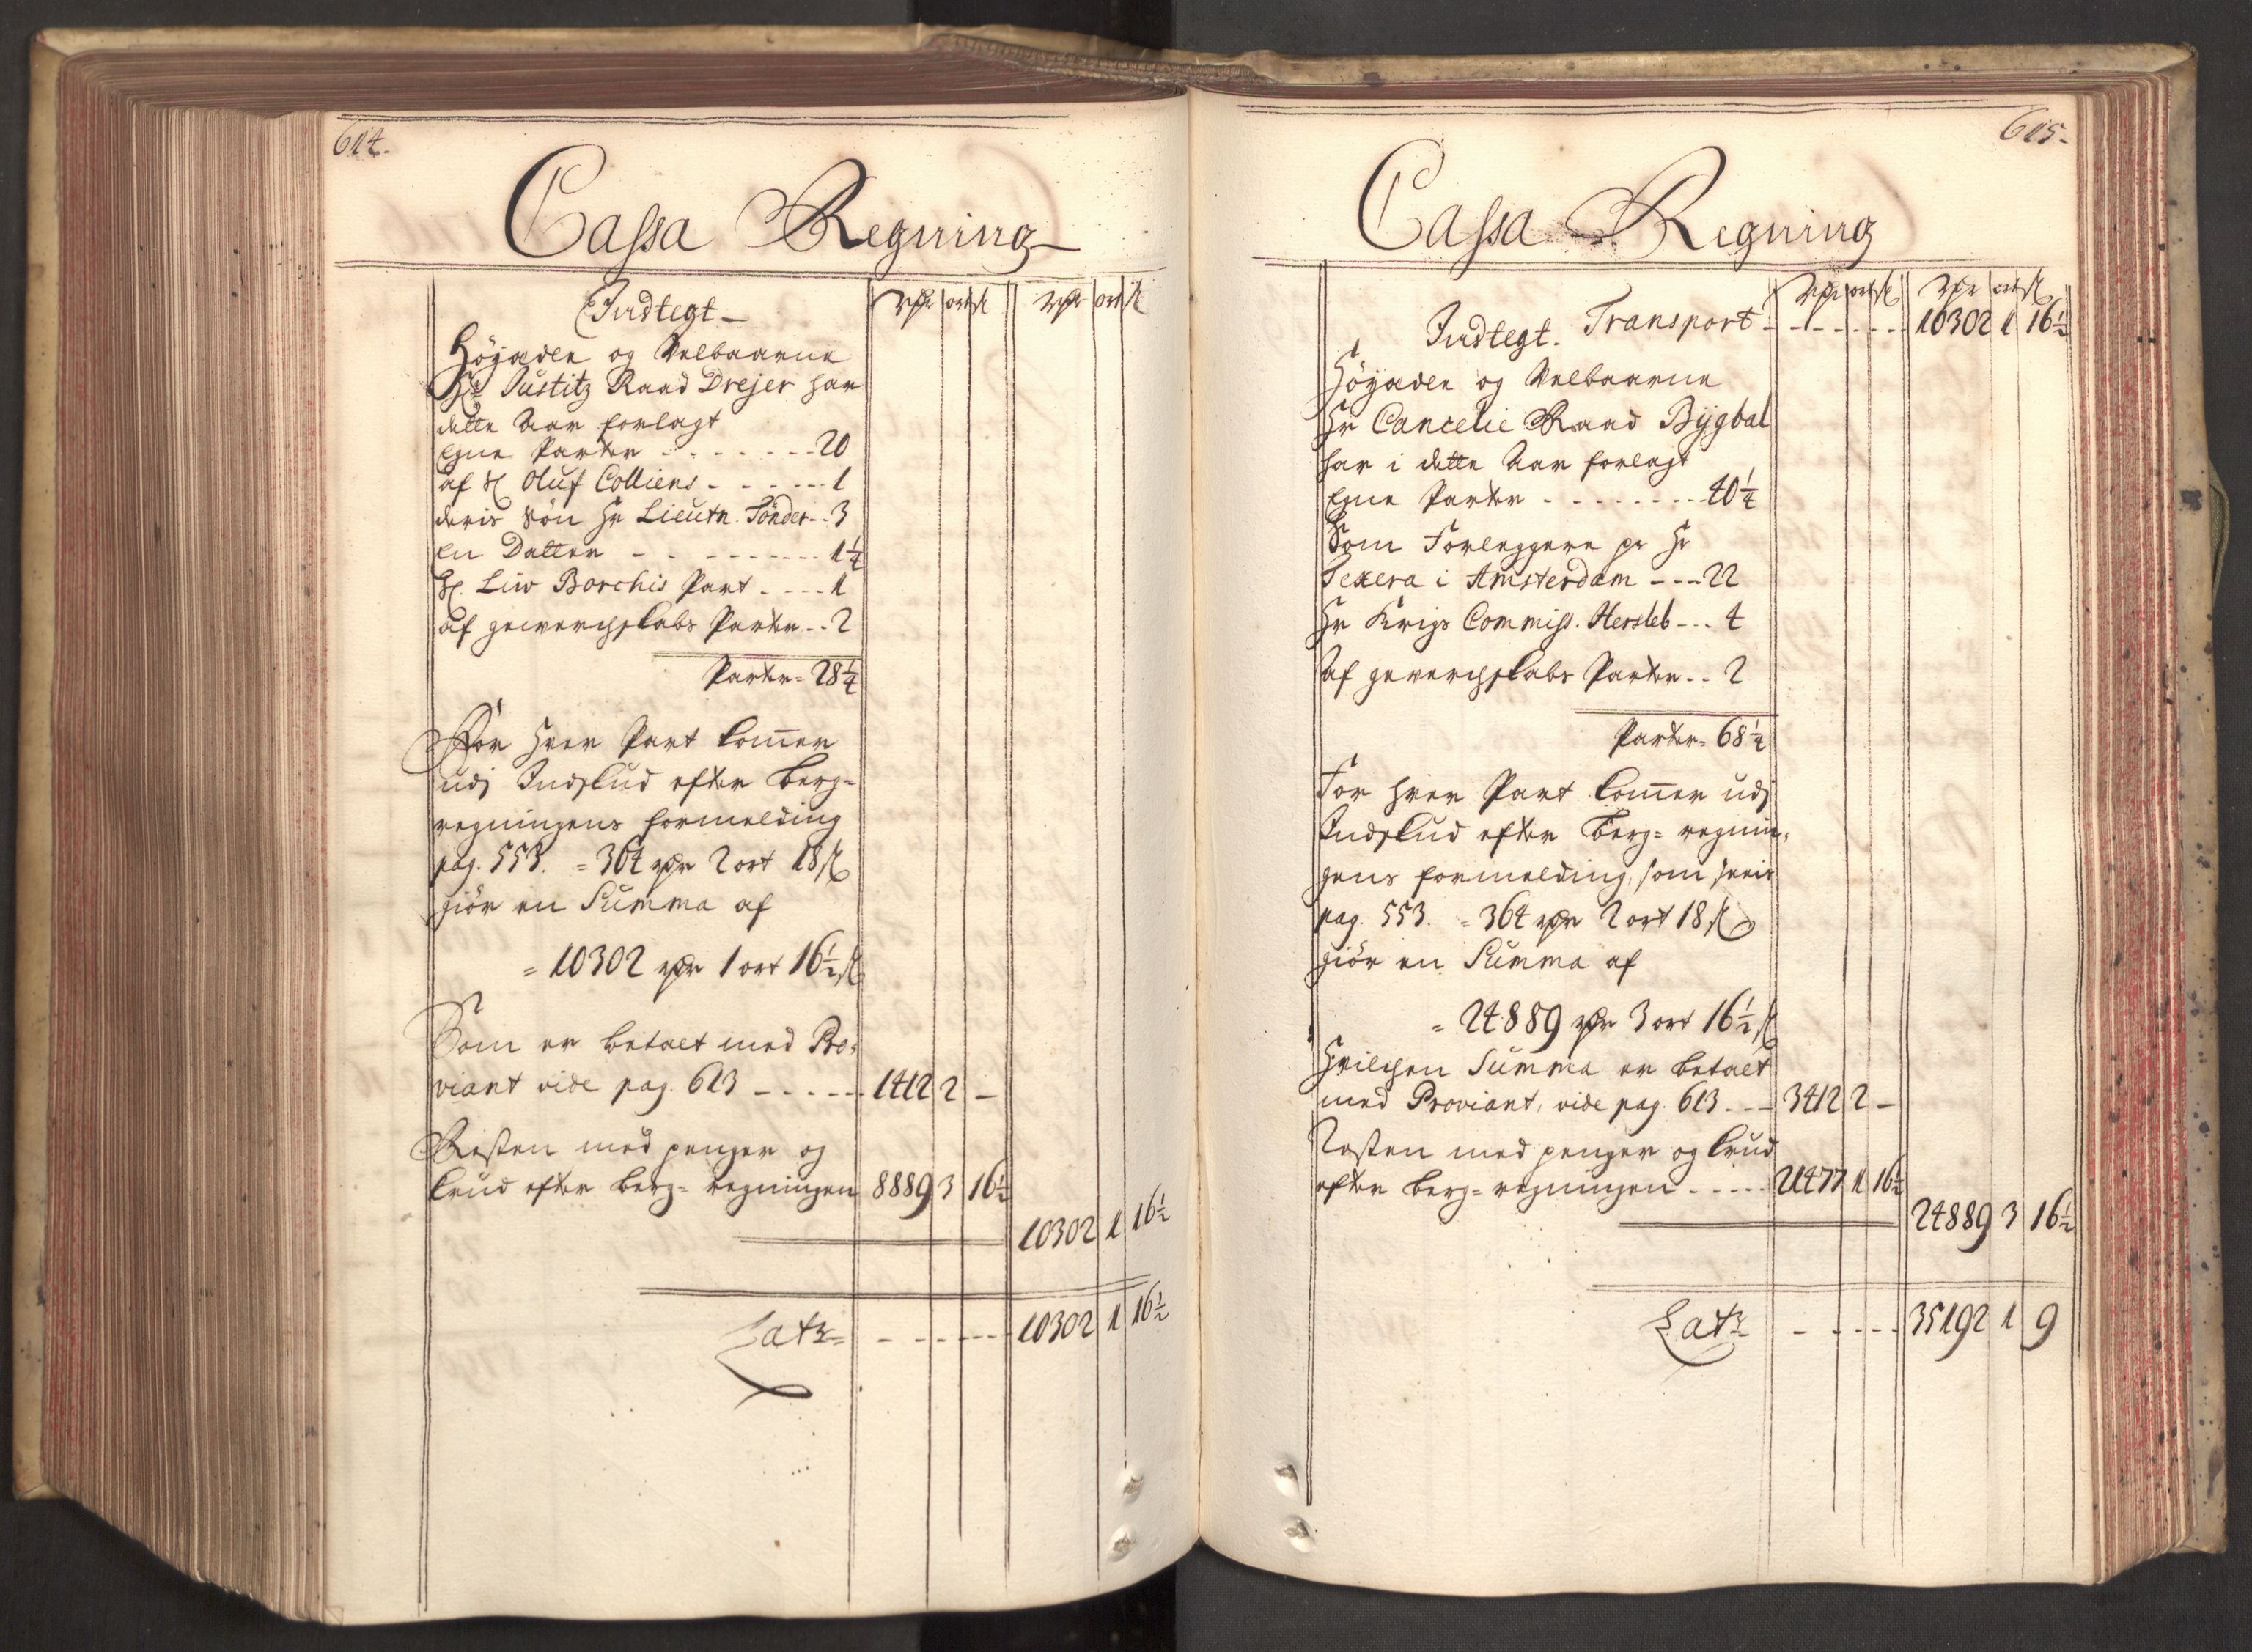 614.
Cassa Regning
Indtegt
rdr ort s rdr ort s
Höyædle og Velbaarne
Hr. Justitz Raad Drejer har
dette Aar forlagt
Egne Parter - - - - - - - 20
af Sl Oluf Colliens - - - - - 1
deris Sön Hr Lieutn. Tönder - - 3
En Datter - - - - - - - - 1 1/4
Sl. Liw Borchis Part - - - - 1
af gewerchskabs Parter - - 2
Parter = 28 1/4
For hver Part kommer
udj Indskud efter Berg=
regningens formelding
pag. 553. = 364 rdr 2 ort 18 s
giör en Summa af
= 10302 rdr 1 ort 16 1/2 s
Som er betalt med Pro=
viant vide pag. 613 - - - - - 1412 2 -
Resten med penger og
krud efter berg= regningen 8889 3 16 1/2
10302 1 16 1/2
Latr= - - - - - - 10302 1 16 1/2
615.
Cassa Regning
rdr ort s rdr ort s
Indtegt. Transport - - - - - - 10302 1 16 1/2
Höyædle og Velbaarne
Hr Cancelie Raad Bÿgbal
har i dette Aar forlagt
Egne Parter - - - - - - - - 40 1/4
Som Forleggere pr Hr
Texera i Amsterdam - - - - 22
Hr Krigs Commiss. Hersleb - - - 4
Af gewerchskabs Parter - - 2
Parter = 68 1/4
For hver Part kommer udj
Indskud efter Berg= regnin=
gens formelding, som sees
pag. 553. = 364 rdr 2 ort 18 s
giör en Summa af
= 24889 rdr 3 ort 16 1/2 s
Hvilchen Summa er betalt
med Proviant, vide pag. 613 - - - 3412 2 -
Resten med penger og krud
efter berg= regningen - - - - - 21477 1 16 1/2
24889 3 16 1/2
Latr= - - - - - 35192 1 9